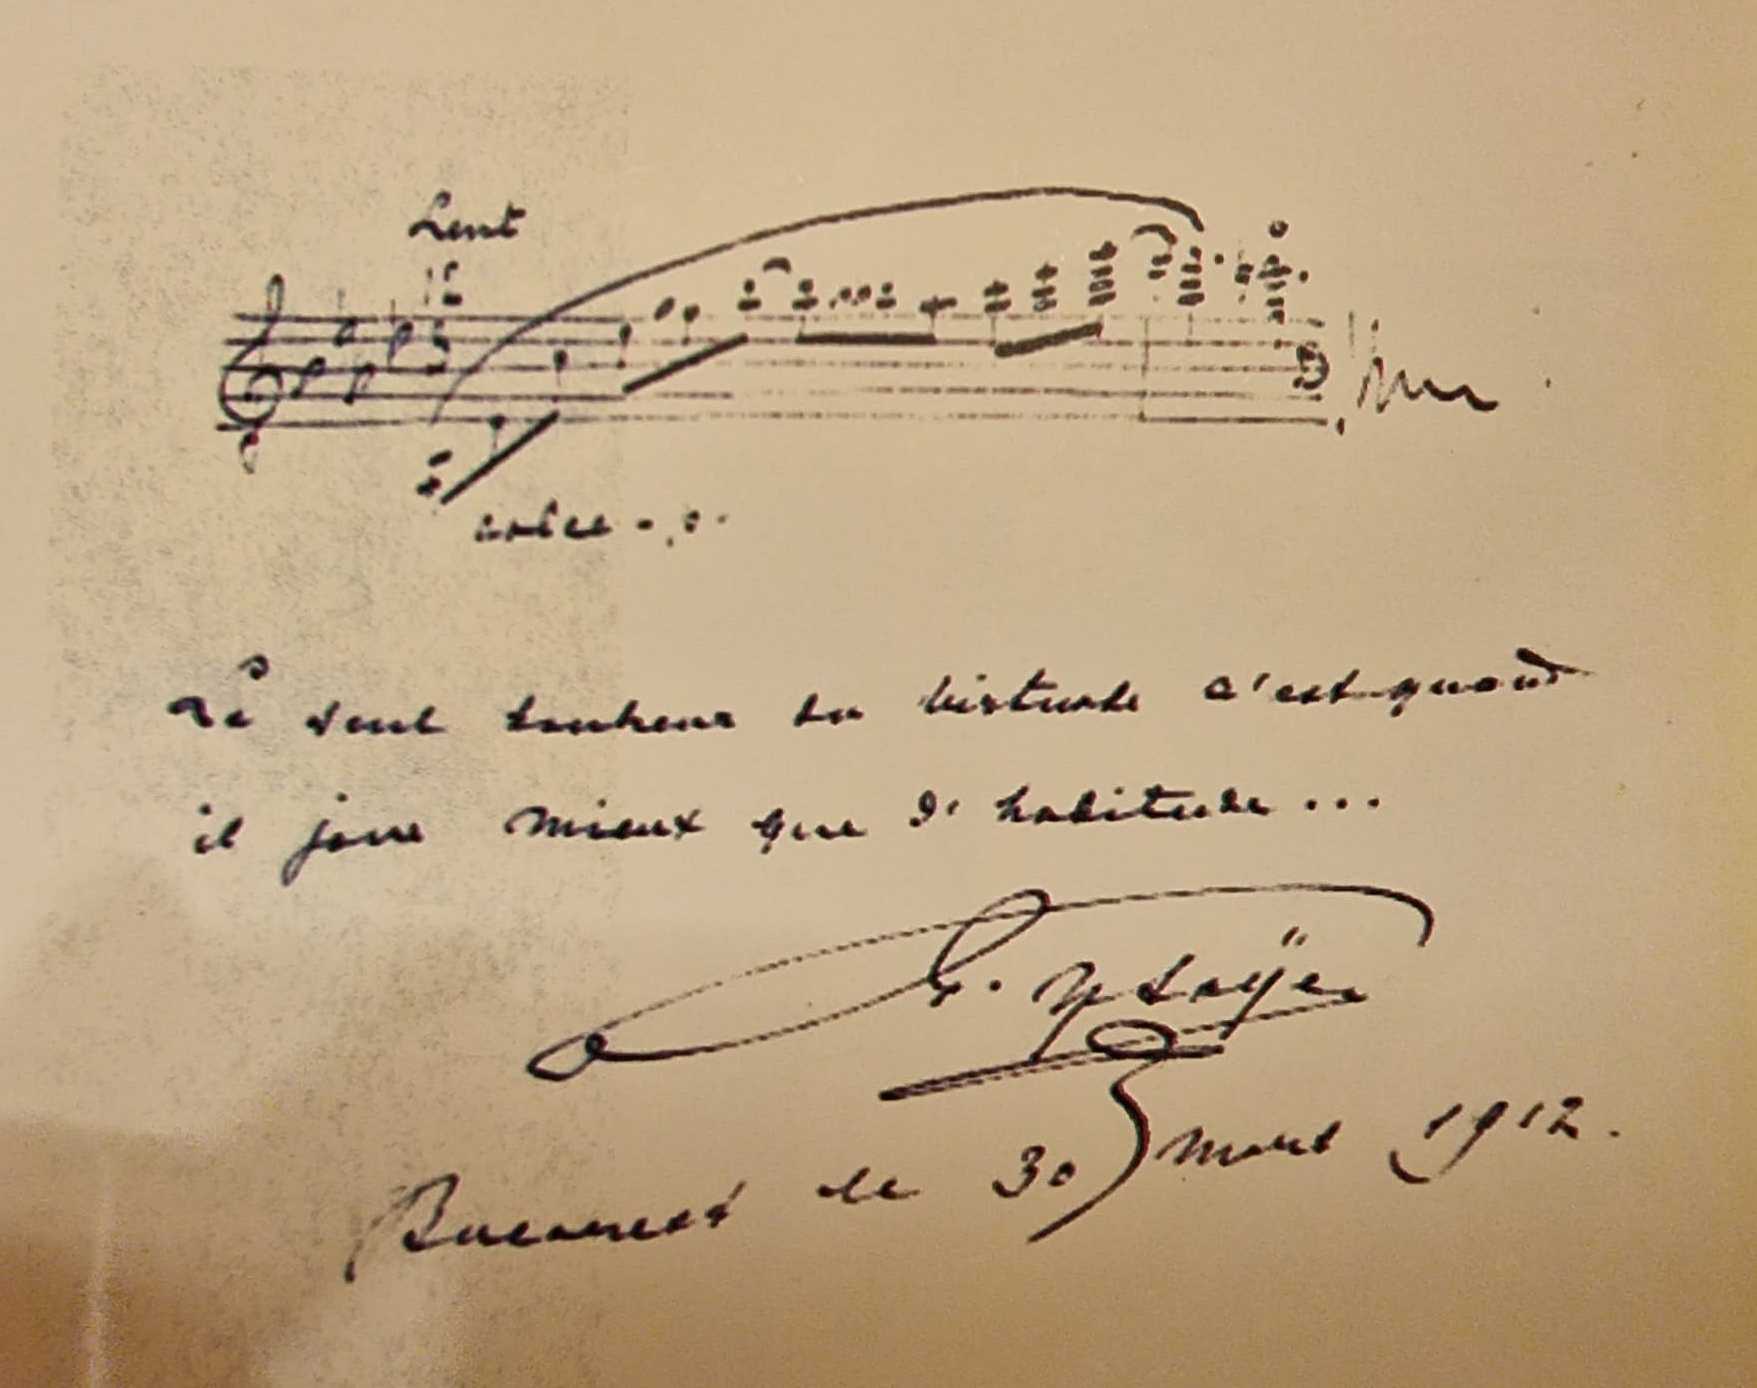 Lent
dolce
Le seul bonheur du virtuose c'est quand
il joue mieux que d'habitude...
E. Ysaÿe
Bucarest le 30 mars 1912.